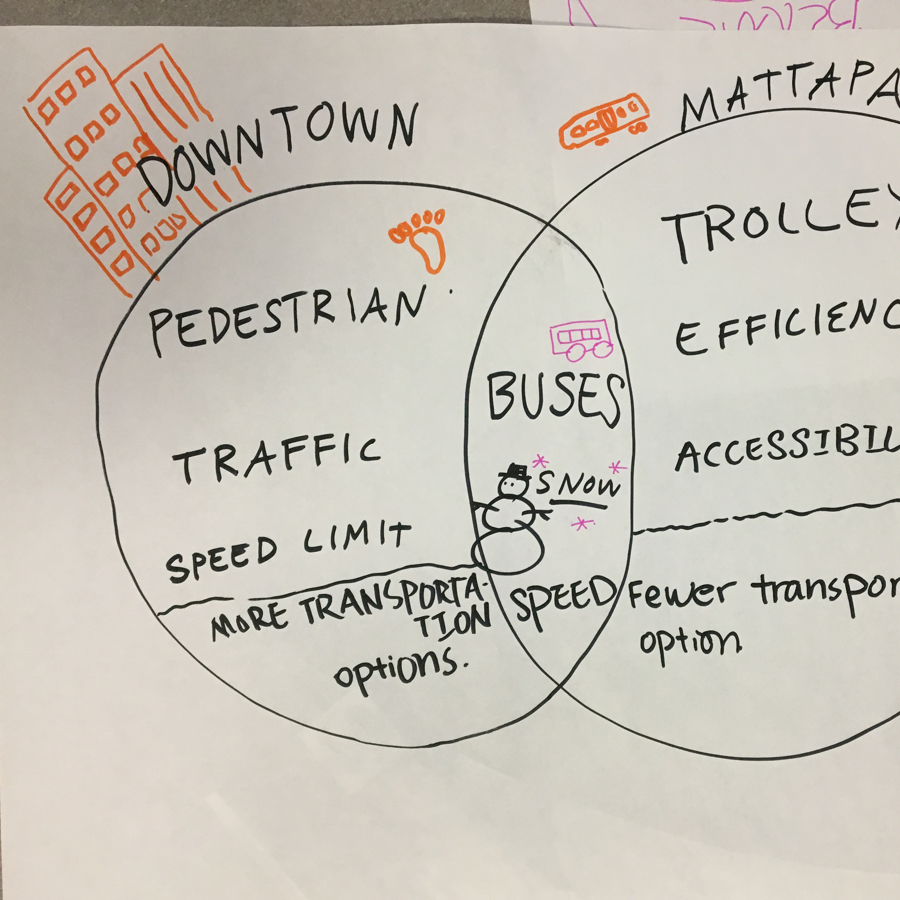 DOWNTOWN
PEDESTRIAN
TRAFFIC
SPEED LIMIT
MORE TRANSPORTA-
TION
options.
BUSES
SNOW
SPEED
MATTAPA
TROLLEY
EFFICIENC
ACCESSIBIL
Fewer transpor
option